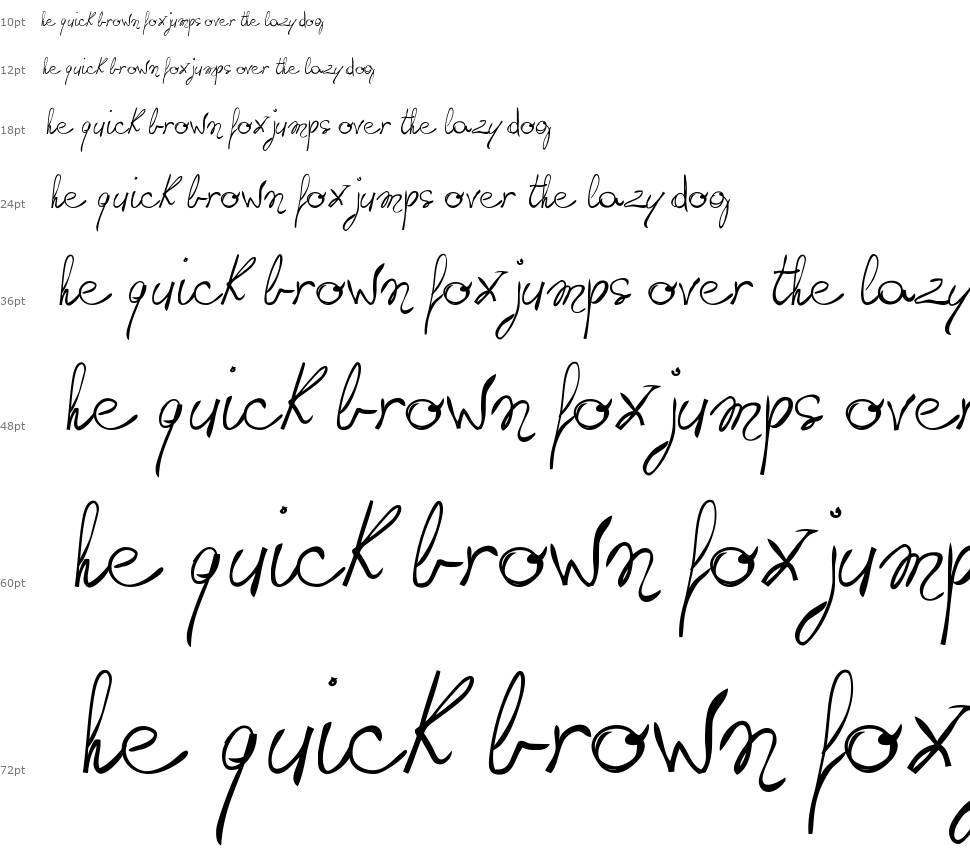 10pt he quick brown fox jumps over the lazy dog
12pt he quick brown fox jumps over the lazy dog
18pt he quick brown fox jumps over the lazy dog
24pt he quick brown fox jumps over the lazy dog
36pt he quick brown fox jumps over the lazy
48pt he quick brown fox jumps over
60pt he quick brown fox jump
72pt he quick brown fox